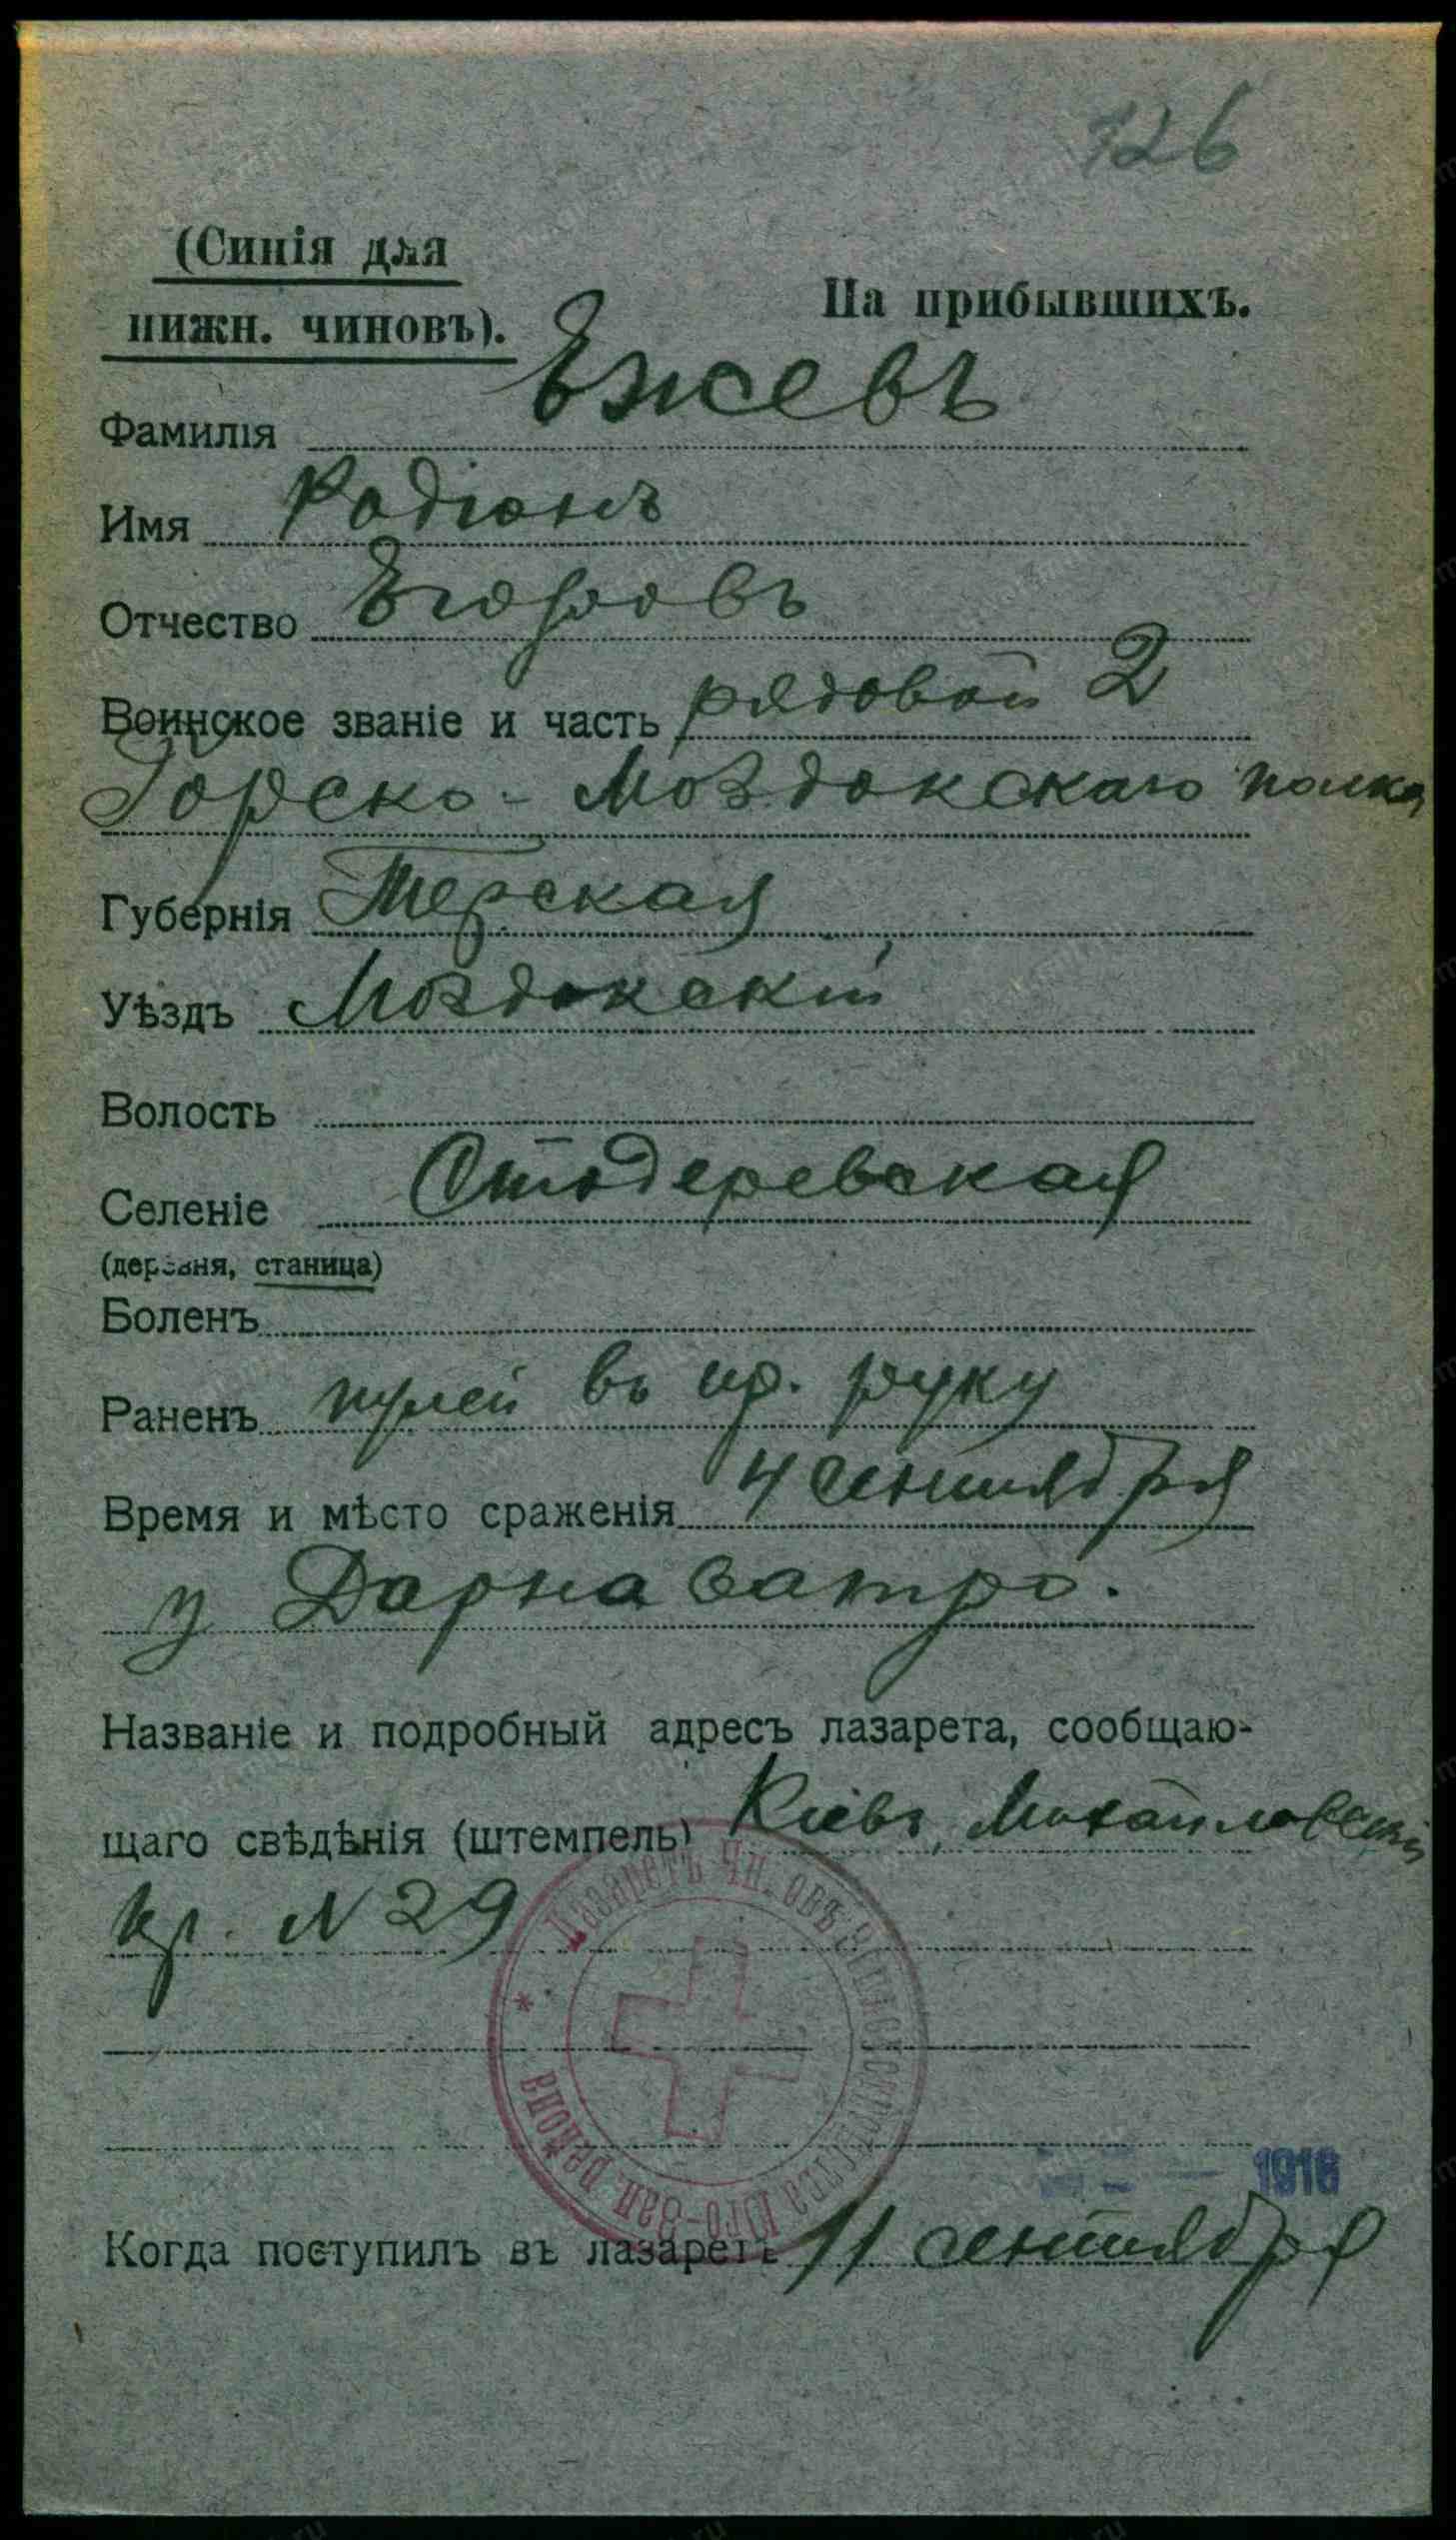 126
(Синія для
нижн. чиновъ).
На прибывшихъ.
Фамилія Ежевъ
Имя Родіонъ
Отчество Егоровъ
Воинское званіе и часть рядовой 2
Горско-Моздокскаго полка
Губернія Терская
Уѣздъ Моздокскій
Волость
Селеніе Стодеревская
(деревня, станица)
Боленъ
Раненъ пулей въ пр. руку
Время и мѣсто сраженія 4 сентября
у Дорна Ватро.
Названіе и подробный адресъ лазарета, сообщаю-
щаго свѣдѣнія (штемпель) Кіевъ, Михайловскій
№ 29
Лазаретъ Юго-Зап. раіона
1916
Когда поступилъ въ лазаретъ 11 сентября